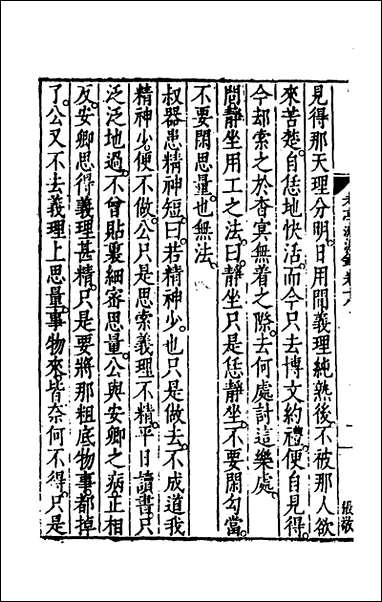 見得那天理分明日用間義理純熟後不被那人欲
來苦楚自恁地快活而今只去博文約禮便自見得
今却索之於杳冥無着之際去何處討這樂處
問靜坐用工之法曰靜坐只是恁靜坐不要閑勾當
不要閑思量也無法
叔器患精神短曰若精神少也只是做去不成道我
精神少便不做公只是思索義理不精平日讀書只
泛泛地過不曾貼裏細密思量公與安卿之病正相
反安卿思得義理甚精只是要將那粗底物事都掉
了公又不去義理上思量事物來皆奈何不得只是